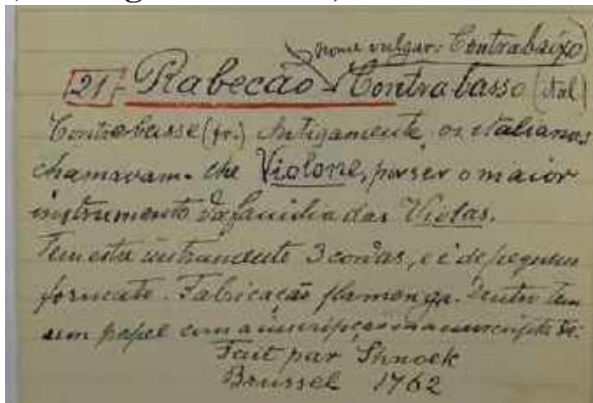 nome vulgar: Contrabaixo
21 - Rabecão - Contrabasso (ital)
Contrebasse (fr.) Antigamente, os italianos
chamavam-lhe Violone, por ser o maior
instrumento da familia das Violas.
Tem este instrumento 3 cordas, e é de pequeno
formato. Fabricação flamenga. Dentro tem
um papel com a inscripção manuscripta
Fait par Shnoek
Brussel 1762